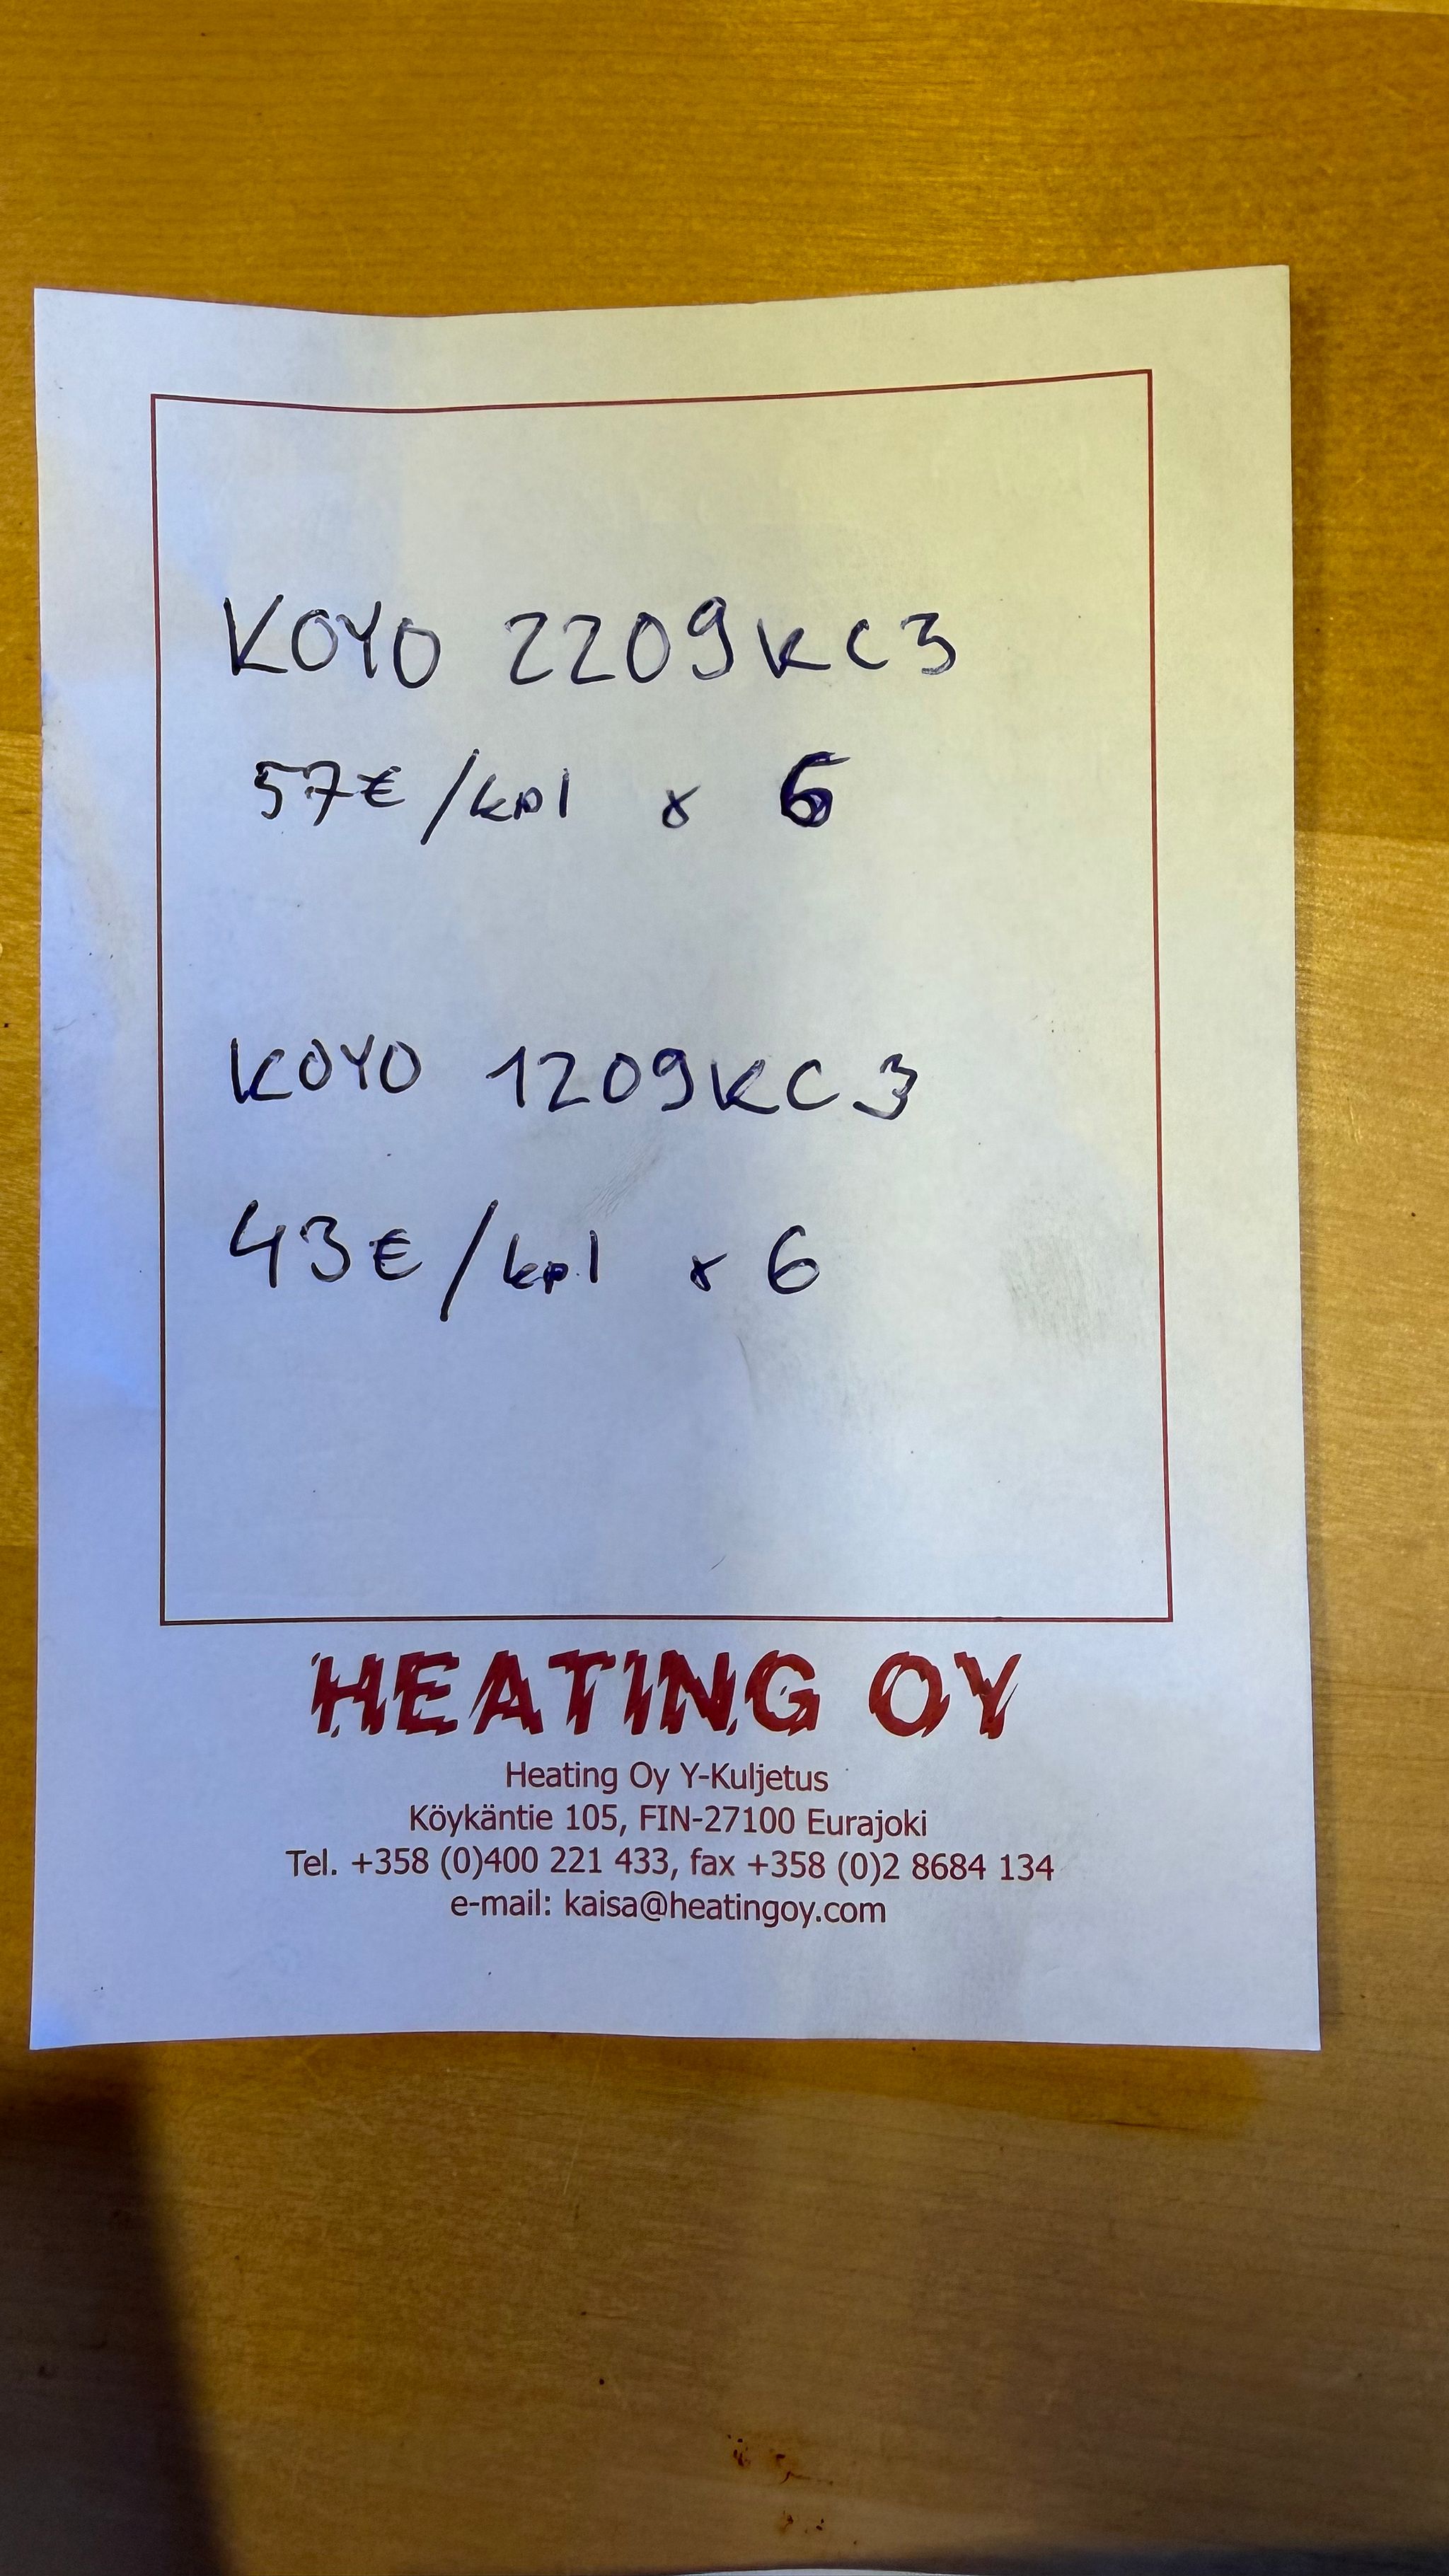 KOYO 2209KC3
57€/kpl x 6
KOYO 1209KC3
43€/kpl x 6
HEATING OY
Heating Oy Y-Kuljetus
Köykäntie 105, FIN-27100 Eurajoki
Tel. +358 (0)400 221 433, fax +358 (0)2 8684 134
e-mail: kaisa@heatingoy.com